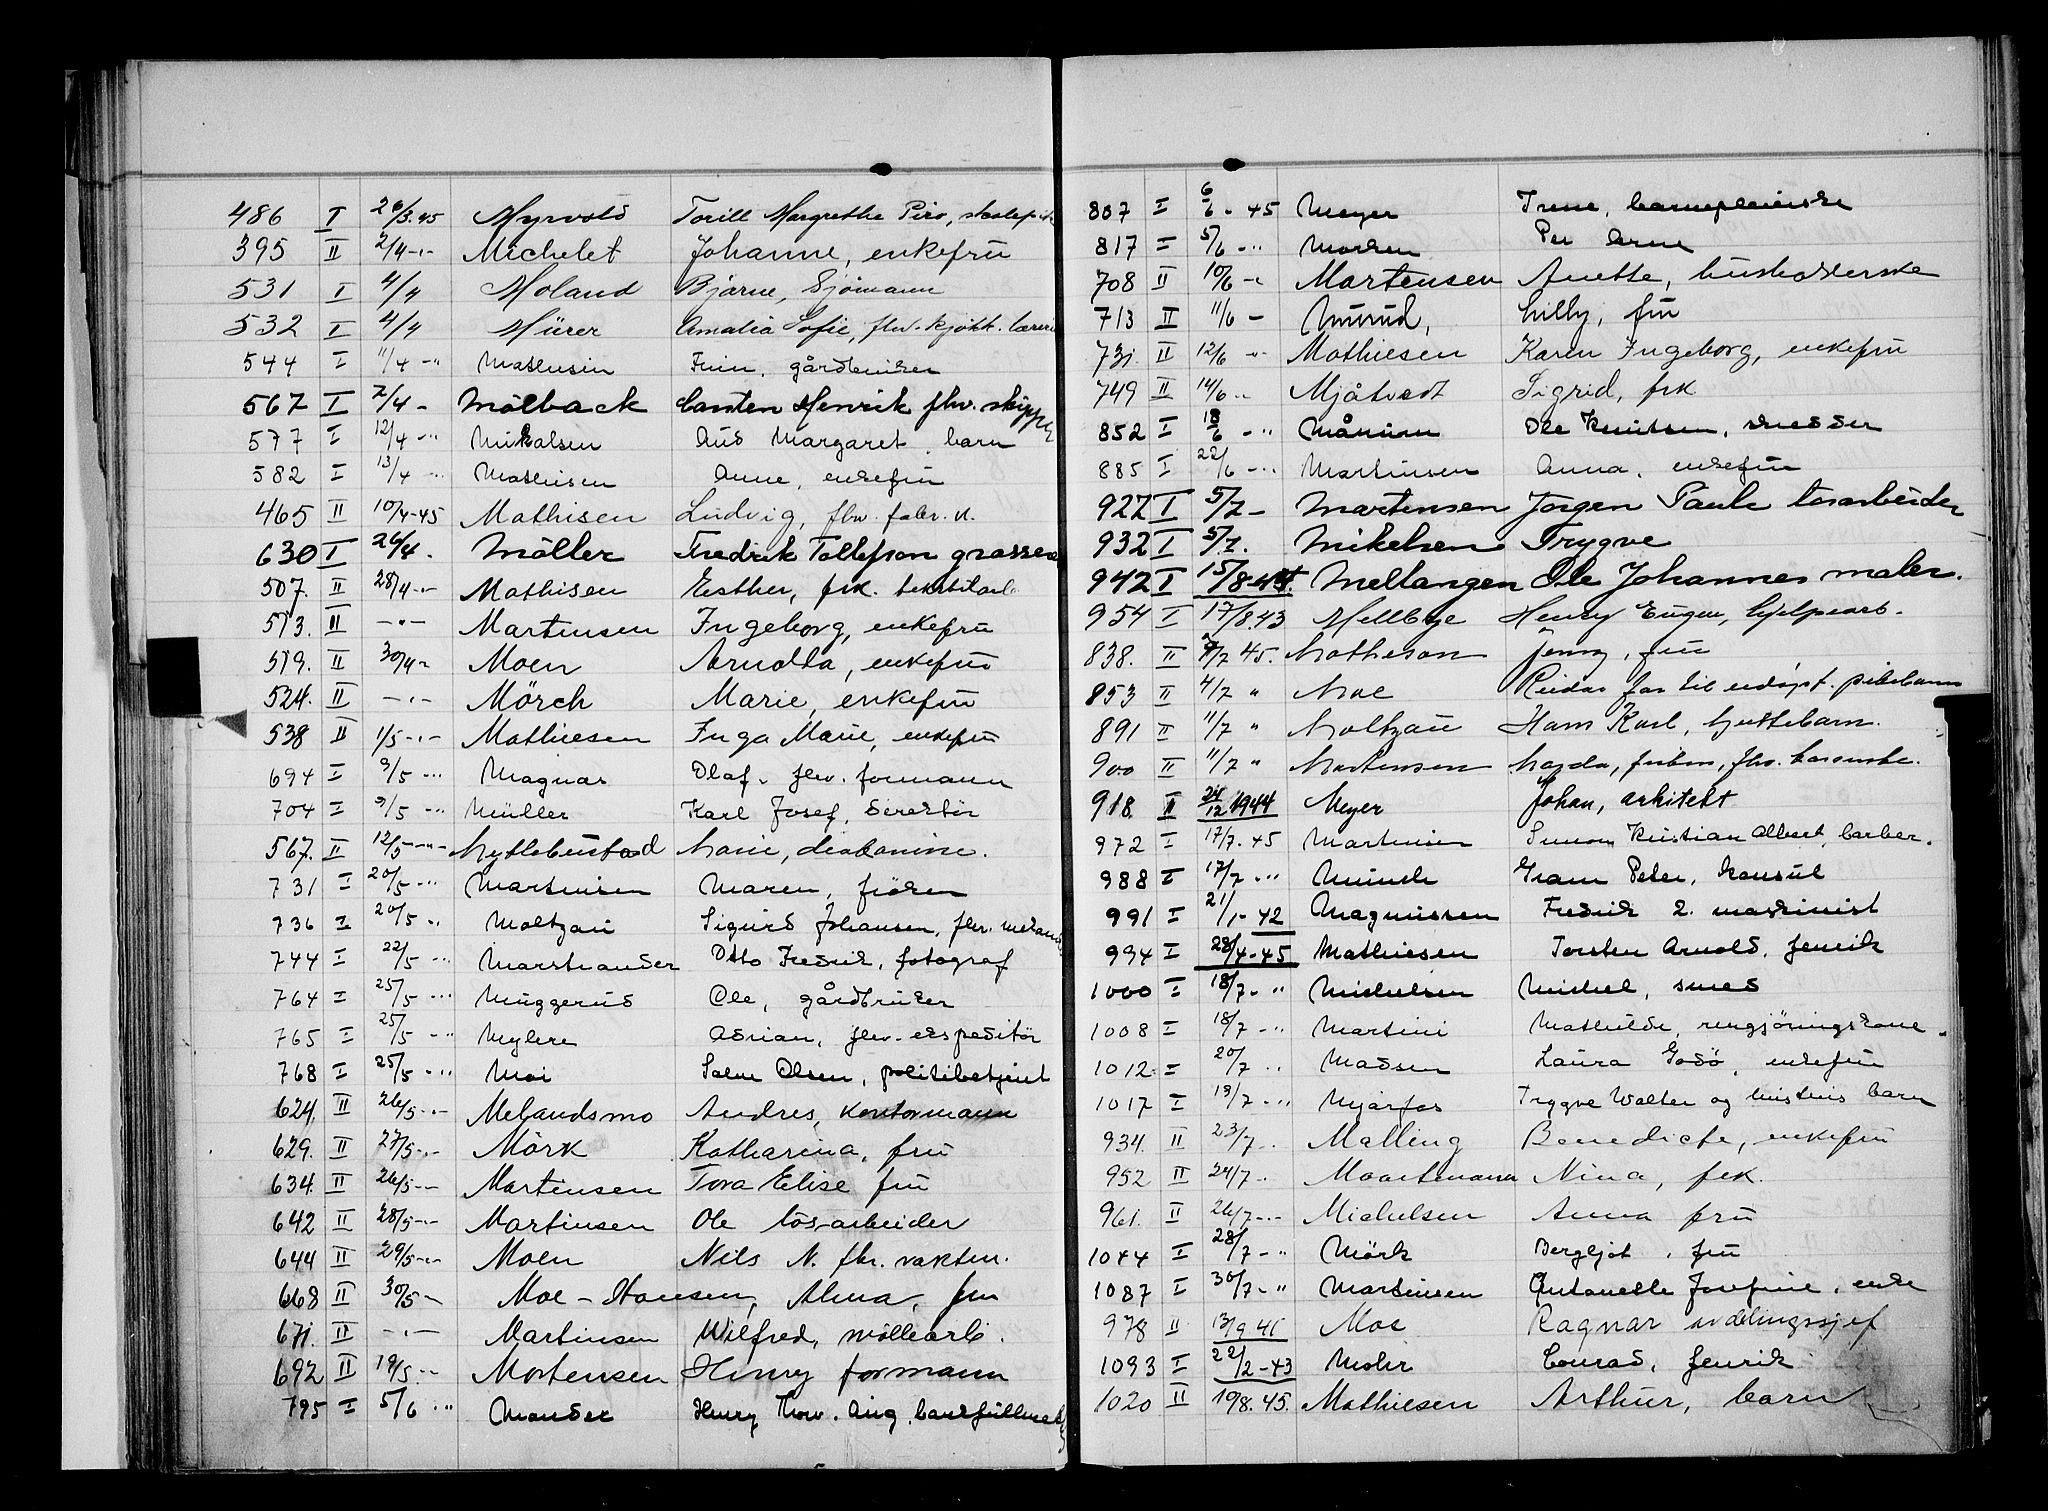 486 I 26/3.45 Myrvold Torill Margrethe Piro, skolepike
395 II 2/4 -"- Michelet Johanne, enkefru
531 I 4/4 Moland Bjarne, Sjömann
532 I 4/4 Mürer Amalia Sofie, fhv. kjökk. lærer
544 I 11/4 -"- Mathisen Finn, gårdbruker
567 I 2/4 - Mölback Carsten Henrik fhv. skipper
577 I 12/4 -"- Mikalsen Aud Margaret, barn
582 I 13/4 -"- Mathisen Anne, enkefru
465 II 10/4-45 Mathisen Ludvig, fhv. fabr. a.
630 I 26/4. Möller Fredrik Tollefson grosserer
507. II 28/4 -"- Mathisen Esther, frk. tekstilarb.
513. II -"- Martensen Ingeborg, enkefru
519. II 30/4 - Moen Arndtа, enkefru
524. II -"- Mörch Marie, enkefru
538 II 1/5 -"- Mathiesen Inga Marie, enkefru
694 I 9/5 -"- Magnar Olaf, fhv. formann
704 I 9/5 -"- Müller Karl Josef, direktör
567. II 12/5 -"- Myklebustad Marie, diakonisse.
731 I 20/5 -"- Martinsen Maren, fröken
736 I 20/5 -"- Moltzau Sigurd Johansen, fhv.
744 I 22/5 -"- Marstrander Otto Fredrik, fotograf
764 I 25/5 -"- Muggerud Ole, gårdbruker
765 I 25/5 -"- Myhre Adrian, fhv. ekspeditör
768 I 25/5 -"- Moi Salve Olsen, politibetjent
624. II 26/5 -"- Melandsmo Andres, kontormann
629. II 27/5 -"- Mörk Katharina, fru
634. II 26/5 -"- Martinsen Tora Elise fru
642 II 28/5 -"- Martinsen Ole lösarbeider
644 II 29/5 -"- Moen Nils N. fhv. vaktm.
668 II 30/5 - Moe-Hansen, Alma, fru
671. II -"- Martinsen Wilfred, möllearb.
692 II 19/5 -"- Mortensen Henry formann
795 I 5/6 -"- Mander Henry Thorv. Aug.
807 I 6/6 - 45 Meyer Irene, barnepleierske
817 I 5/6 -"- Morken Per Arne
708 II 10/6 -"- Martensen Anette, husholderske
713 II 11/6 - Murud, Lilly, fru
731. II 12/6 -"- Mathiesen Karen Ingeborg, enkefru
749 II 14/6 -"- Mjåtvedt Sigrid, frk
852 I 18/6 -"- Månum Ole Knutsen, snedker
885 I 22/6 -"- Martinsen Anna, enkefru
927 I 5/7 - Martensen Jörgen Paule lösarbeider
932 I 5/7. Mikelsen Trygve
942 I 15/8-44. Mellangen Ole Johannes maler.
954 I 17/8.43 Mellbye Henry Eugen, hjelpearb.
838. II 4/7 45. Matheson Jenny, fru
853 II 4/7 " Moe Reidar far til udöpt. pikebarn
891 II 11/7 " Moltzau Hans Karl, guttebarn.
900 II 11/7 " Martensen Magda,
918. II 24/12 1944 Meyer Johan, arkitekt
972 I 17/7. 45 Martinsen Simon Kristian Albert, barber.
988 I 17/7 -"- Munch Gram Peter, konsul
991 I 21/1-42 Magnussen Fredrik 2. maskinist
994 I 28/4-45 Mathiesen Torsten Arnold, fenrik
1000 I 18/7 -" Michelsen Michel, smed
1008 I 18/7 -" Martini Mathilde, rengjöringskone.
1012 I 20/7 -" Madsen Laura Godö, enkefru
1017 I 19/7 -"- Mjörfos Trygve Walter og hustrus barn
934. II 23/7 - Malling Benedicte, enkefru
952 II 24/7 - Maartmann Nina, frk.
961. II 26/7 -"- Michelsen Anna fru
1044 I 28/7 -" Mörk Bergljot, fru
1087 I 30/7 -" Martinsen Antonette Josefine, enke
978 II 13/9 41 Moe Ragnar avdelingssjef
1093 I 22/2-43 Mohr Conrad, fenrik
1020 II 10/8.45. Mathiesen Arthur, barn